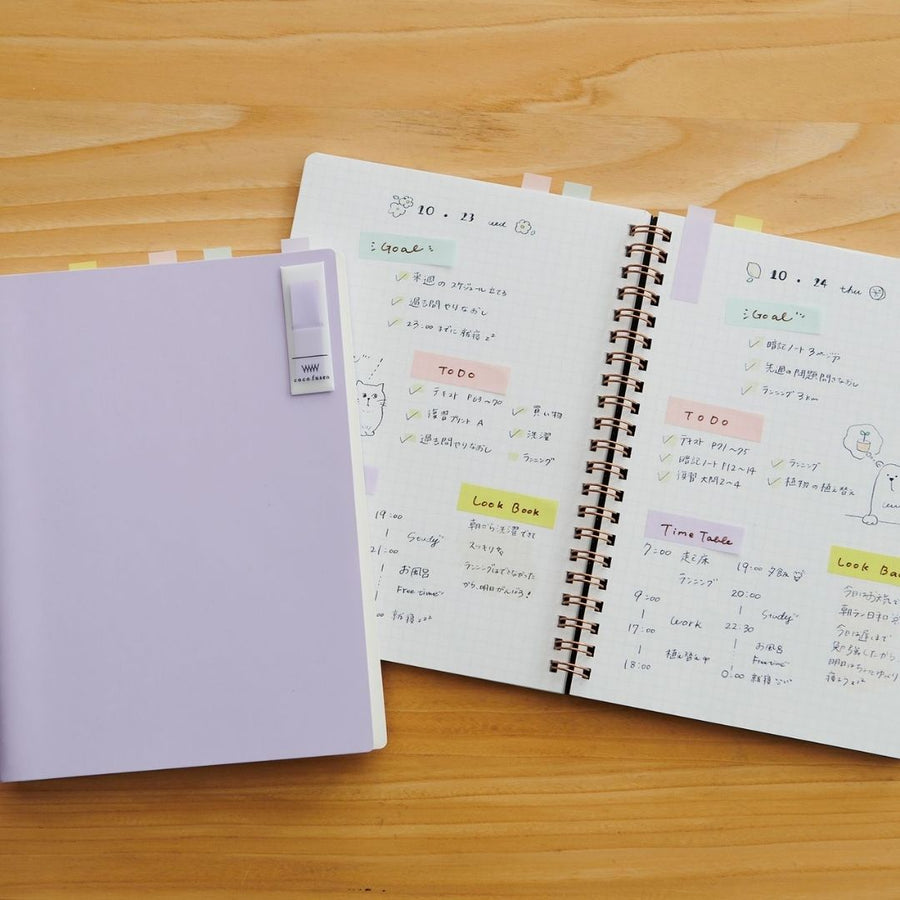 coco fusen
10・23 wed
Goal
来週のスケジュール立てる
過去問やりなおし
23:00までに就寝 z²
TODO
テキスト P63〜70
復習プリント A
過去問やりなおし
買い物
洗濯
ランニング
19:00
Study
21:00
お風呂
Free time
00 就寝 z²²
Look Book
朝から洗濯できて
スッキリ
ランニングはできなかった
から、明日がんばる!
10・24 thu
Goal
暗記ノート3ページ
先週の問題聞きなおし
ランニング3km
TODO
テキスト P71〜75
暗記ノートP12〜14
復習 大問2〜4
ランニング
植物の植え替え
Time Table
7:00 起床
ランニング
9:00
Work
17:00
植え替え
18:00
19:00 夕飯
20:00
Study
22:30
お風呂
Free time
0:00 就寝
Look Ba
今日は
朝ラン日和
今日は遅くまで
勉強したから
明日はちょっとゆっくり
寝よう z²²